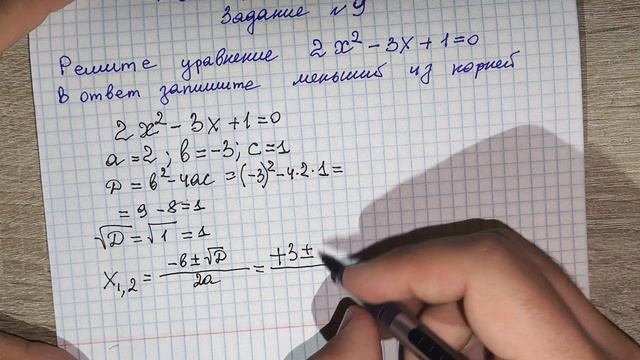 Задание №9
Решите уравнение 2x² - 3x + 1 = 0
В ответ запишите меньший из корней
2x² - 3x + 1 = 0
a = 2 ; b = -3; c = 1
D = b² - 4ac = (-3)² - 4·2·1 =
= 9 - 8 = 1
√D = √1 = 1
x₁,₂ = (-b ± √D)/(2a) = +3 ±